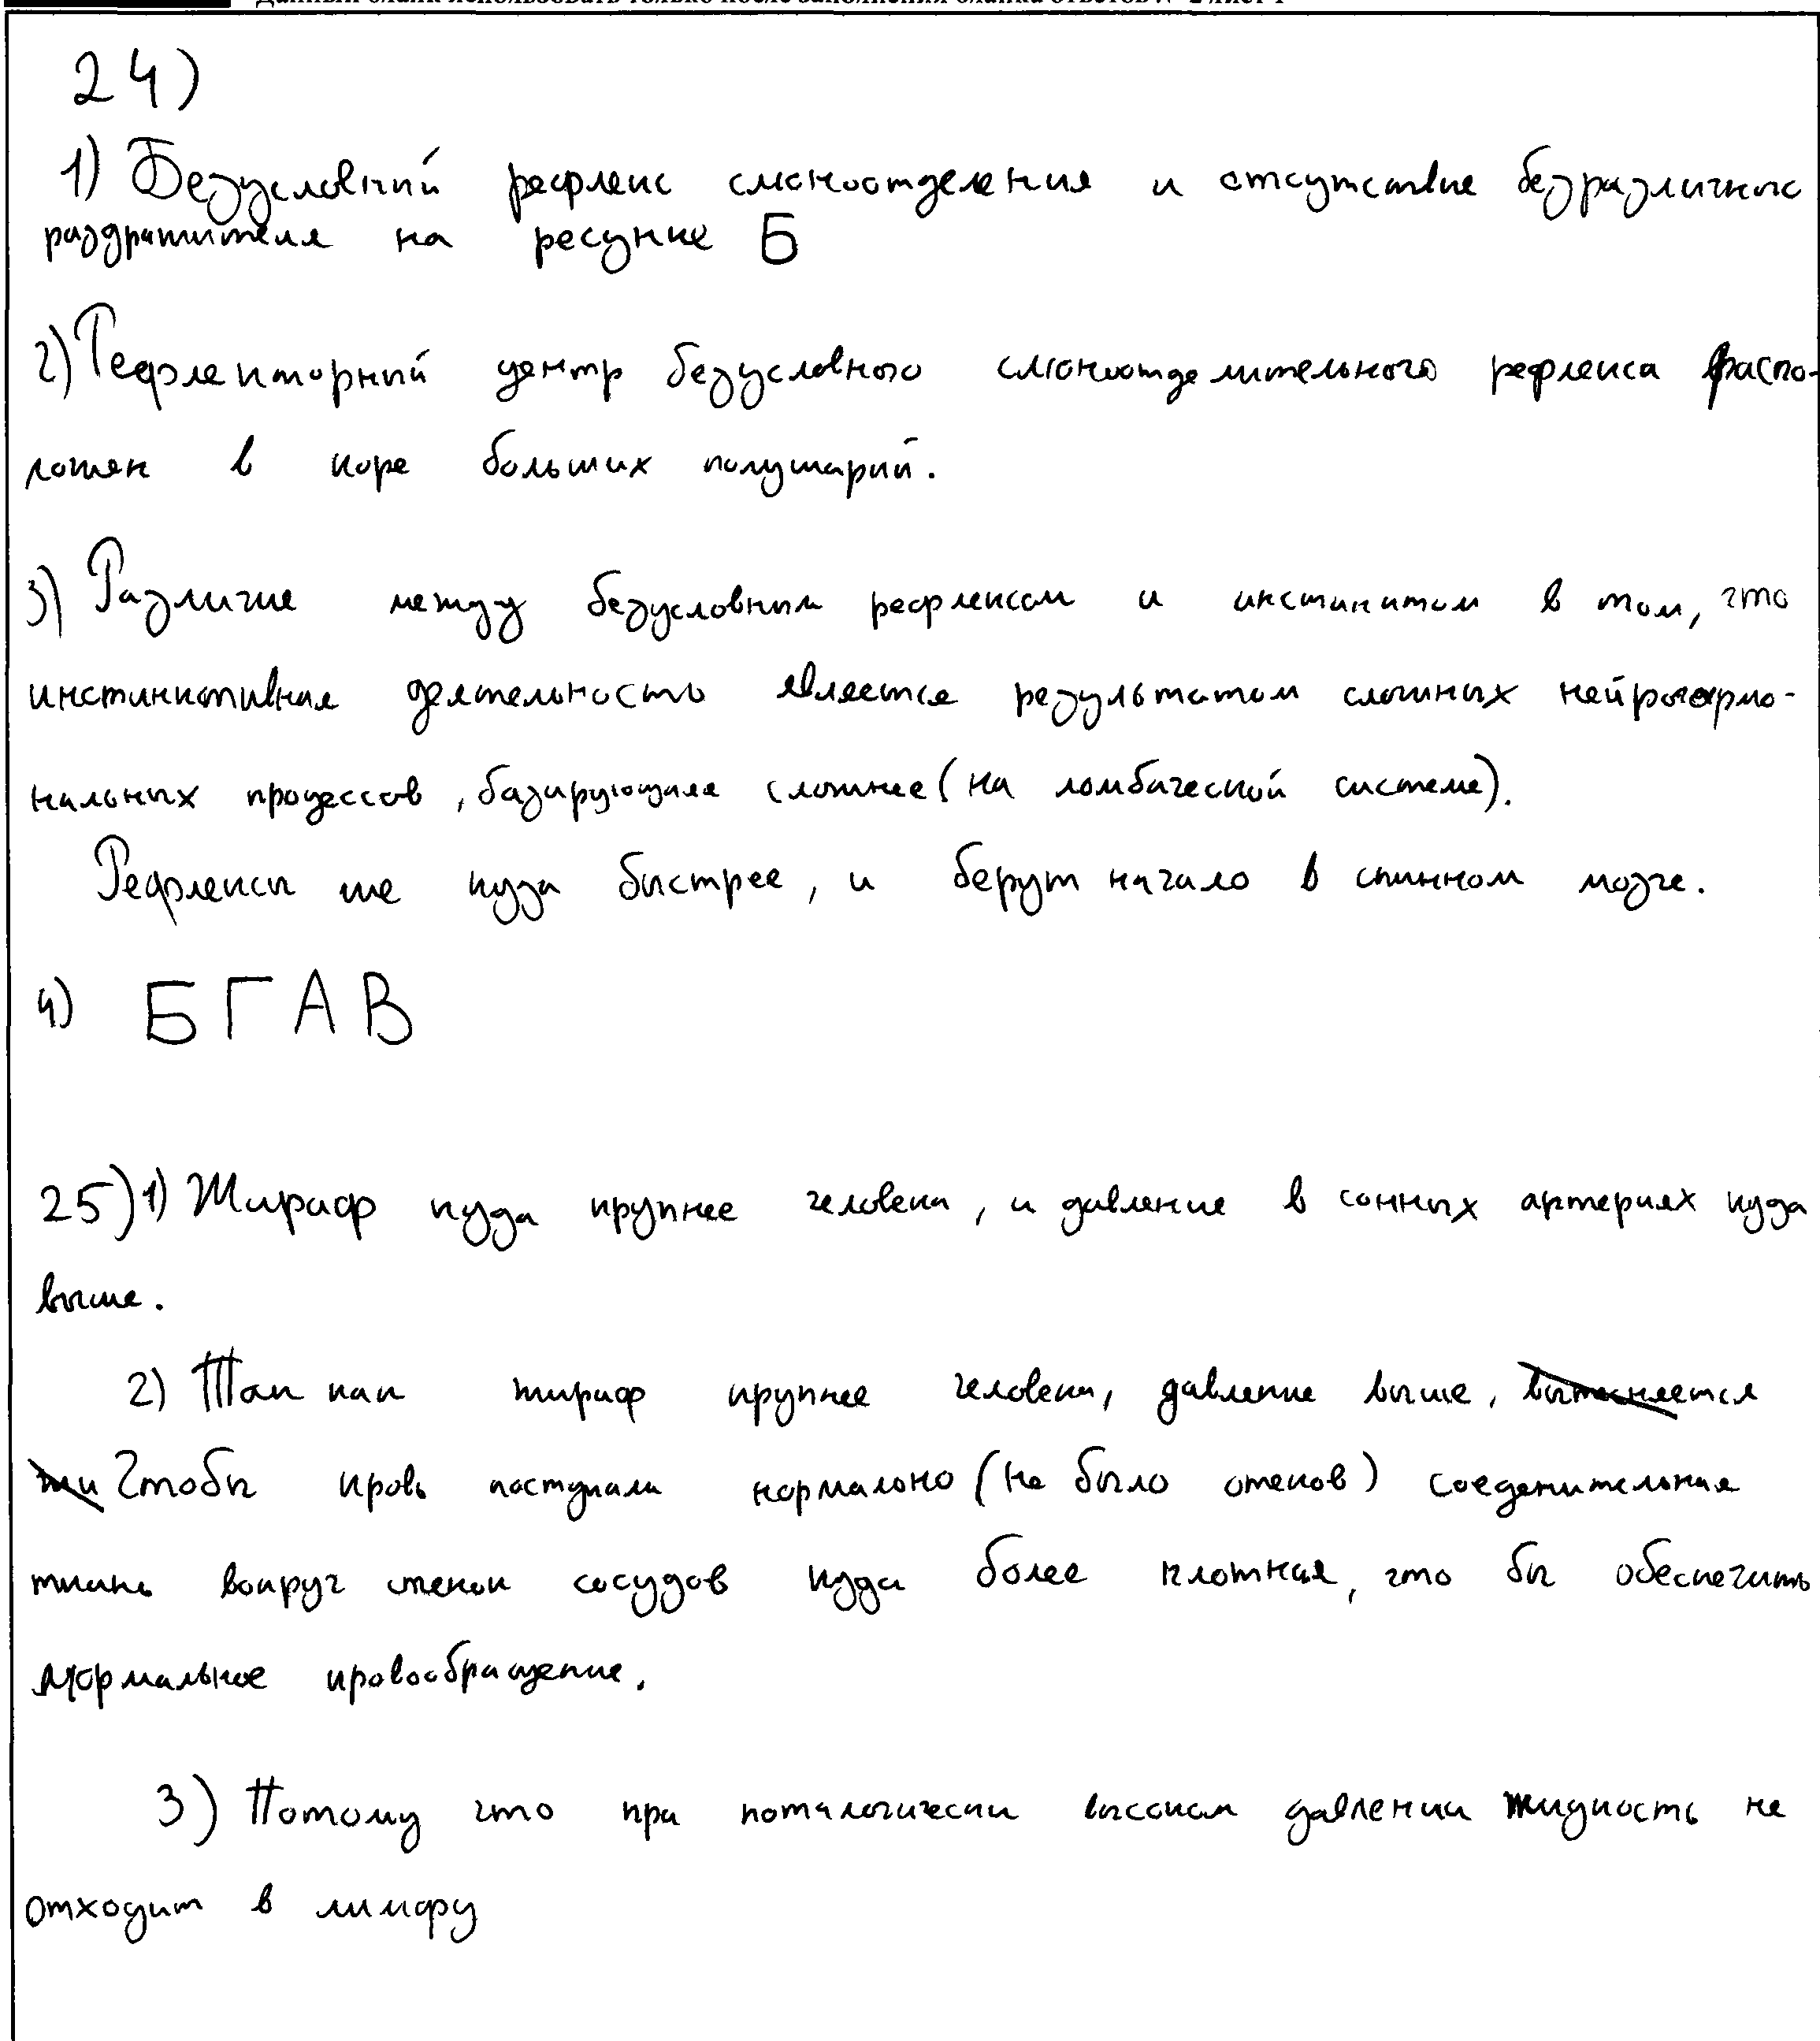 Данный бланк использовать только после заполнения бланка ответов № 2 лист 1
24)
1) Безусловный рефлекс слюноотделения и отсутствие безразличного
раздражителя на ресунке Б
2) Рефлекторный центр безусловного слюноотделительного рефлекса распо-
ложен в коре больших полушарий.
3) Различие между безусловным рефлексом и инстинктом в том, что
инстинктивная деятельность является результатом сложных нейрогормо-
нальных процессов, базирующаяся сложнее (на ломбической системе).
Рефлексы же куда быстрее, и берут начало в спинном мозге.
4) БГАВ
25) 1) Жираф куда крупнее человека, и давление в сонных артериях куда
выше.
2) Так как жираф крупнее человека, давление выше,
Чтобы кровь поступала нормально (не было отеков) соеденительная
ткань вокруг стенок сосудов куда более плотная, что бы обеспечить
нормальное кровообращение.
3) Потому что при поталогически высоком давлении жидкость не
отходит в лимфу